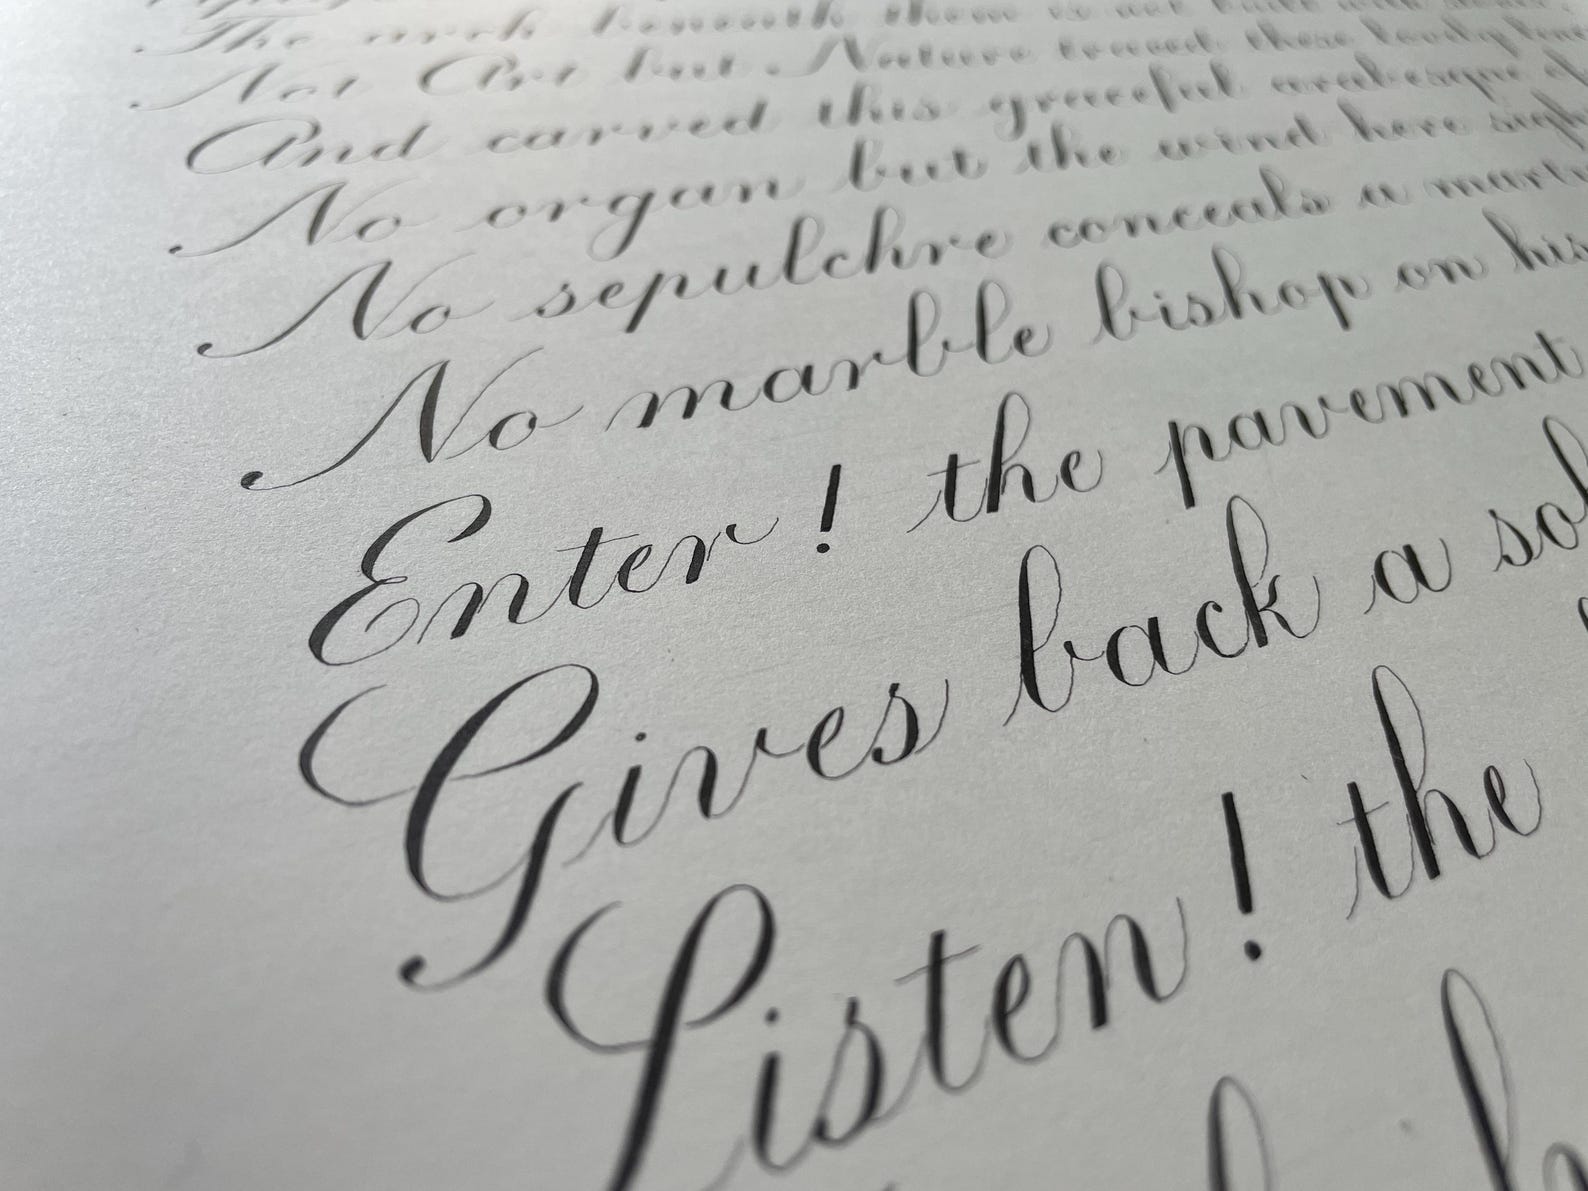 The arch beneath them is not built with
Not Art but Nature traced these lovely
And carved this graceful arabesque
No organ but the wind here
No sepulchre conceals a
No marble bishop on his
Enter! the pavement
Gives back a
Listen! the